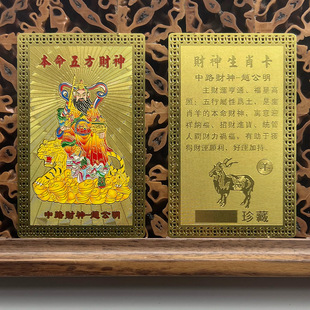 本命五方財神
中路財神-趙公明
財神生肖卡
中路財神-趙公明
主財運亨通，福星高
照；五行屬性爲土，是屬
肖羊的本命財神，寓意迎
祥納福、招財進寶，統管
人間財力禍福，有助于擁
有財運順利、好運加持。
珍藏